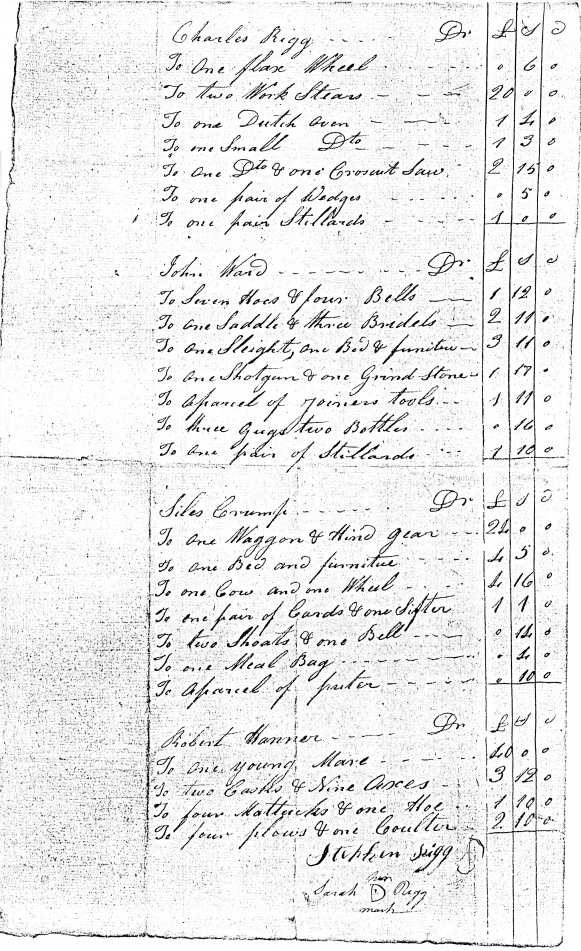 Charles Rigg ----- Dr £ S D
To one flax Wheel ----- 0 6 0
To two Work Stears - - - 20 0 0
To one Dutch oven - - - 1 4 0
To one Small Dto - - - 1 3 0
To one Dto & one Croscut Saw 2 15 0
To one pair of Wedges ----- 0 5 0
To one pair Stillards ----- 1 0 0
John Ward ----- Dr £ S D
To Seven Hoes & four Bells — 1 12 0
To one Saddle & three Bridels — 2 11 0
To one Sleight, one Bed & furnitue — 3 11 0
To one Shotgun & one Grind Stone - 1 17 0
To aparcel of Joiners tools - - 1 11 0
To three Gugs two Bottles - - - 0 16 0
To one pair of Stillards - - - 1 10 0
Siles Crump ----- Dr £ S D
To one Waggon & Hind gear --- 24 0 0
To one Bed and furnitue --- 4 5 0
To one Cow and one Wheel ---- 4 16 0
To one pair of Cards & one Sifter 1 1 0
To two Shoats & one Bell ---- 0 14 0
To one Meal Bag ------- 0 4 0
To aparcel of puter ----- 0 10 0
Robert Hanner ----- Dr £ S D
To one young Mare ----- 40 0 0
To two Casks & Nine Axes - - 3 12 0
To four Mattucks & one Hoe - - 1 10 0
To four plows & one Coulter - - 2 10 0
Stephen Rigg
her
Sarah D Rigg
mark